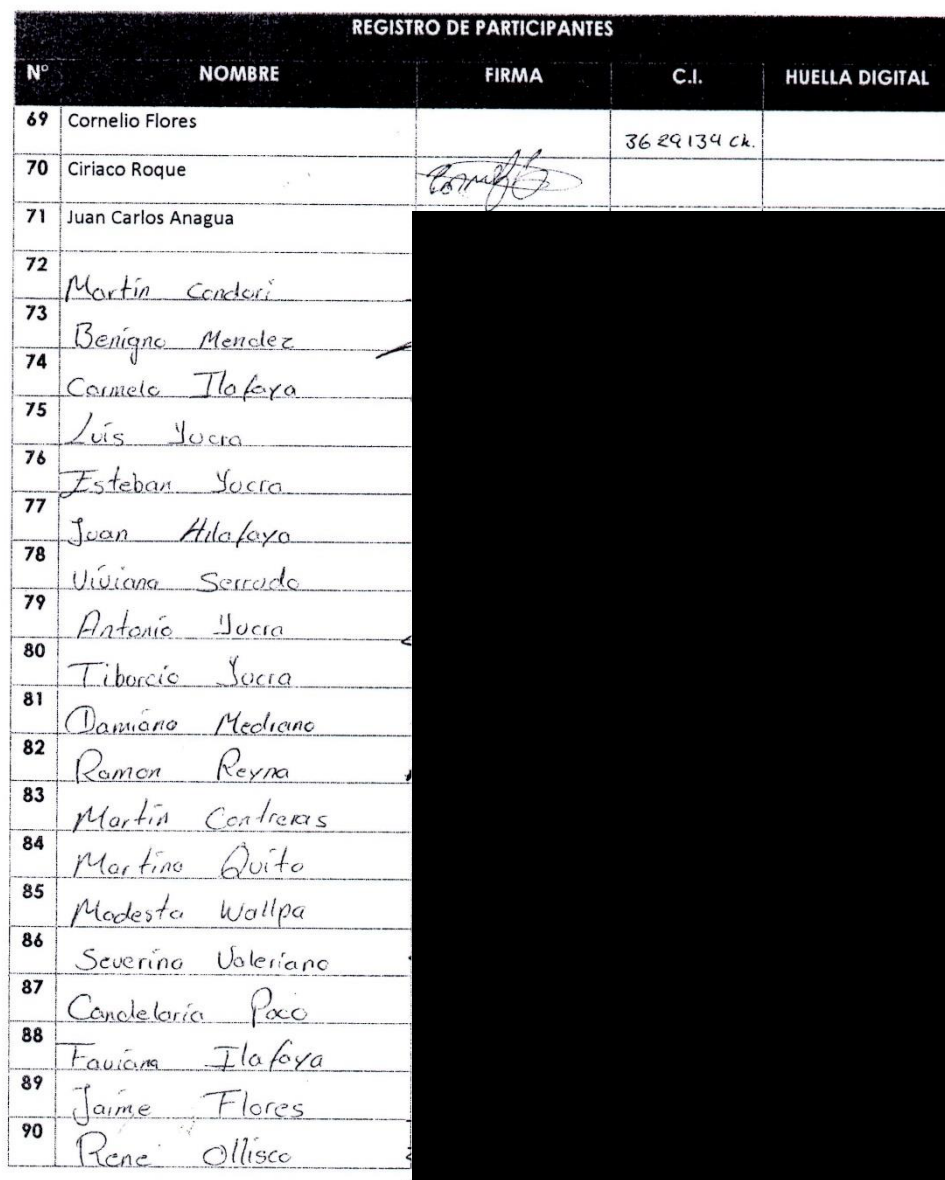 REGISTRO DE PARTICIPANTES
N° NOMBRE FIRMA C.I. HUELLA DIGITAL
69 Cornelio Flores 3629134 Ch.
70 Ciriaco Roque
71 Juan Carlos Anagua
72 Martín Condori
73 Benigno Mendez
74 Carmelo Ilafaya
75 Luis Yucra
76 Esteban Yucra
77 Juan Hilafaya
78 Viviana Serrudo
79 Antonio Yucra
80 Tiborcio Yucra
81 Damiana Medrano
82 Ramon Reyna
83 Martín Contreras
84 Martina Quito
85 Modesta Wallpa
86 Severino Valeriano
87 Candelaria Paco
88 Faviana Ilafaya
89 Jaime Flores
90 Rene Ollisco